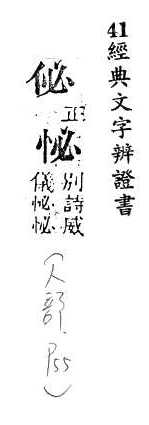 41經典文字辨證書
佖正怭別詩威
儀怭怭
(人部.P55)